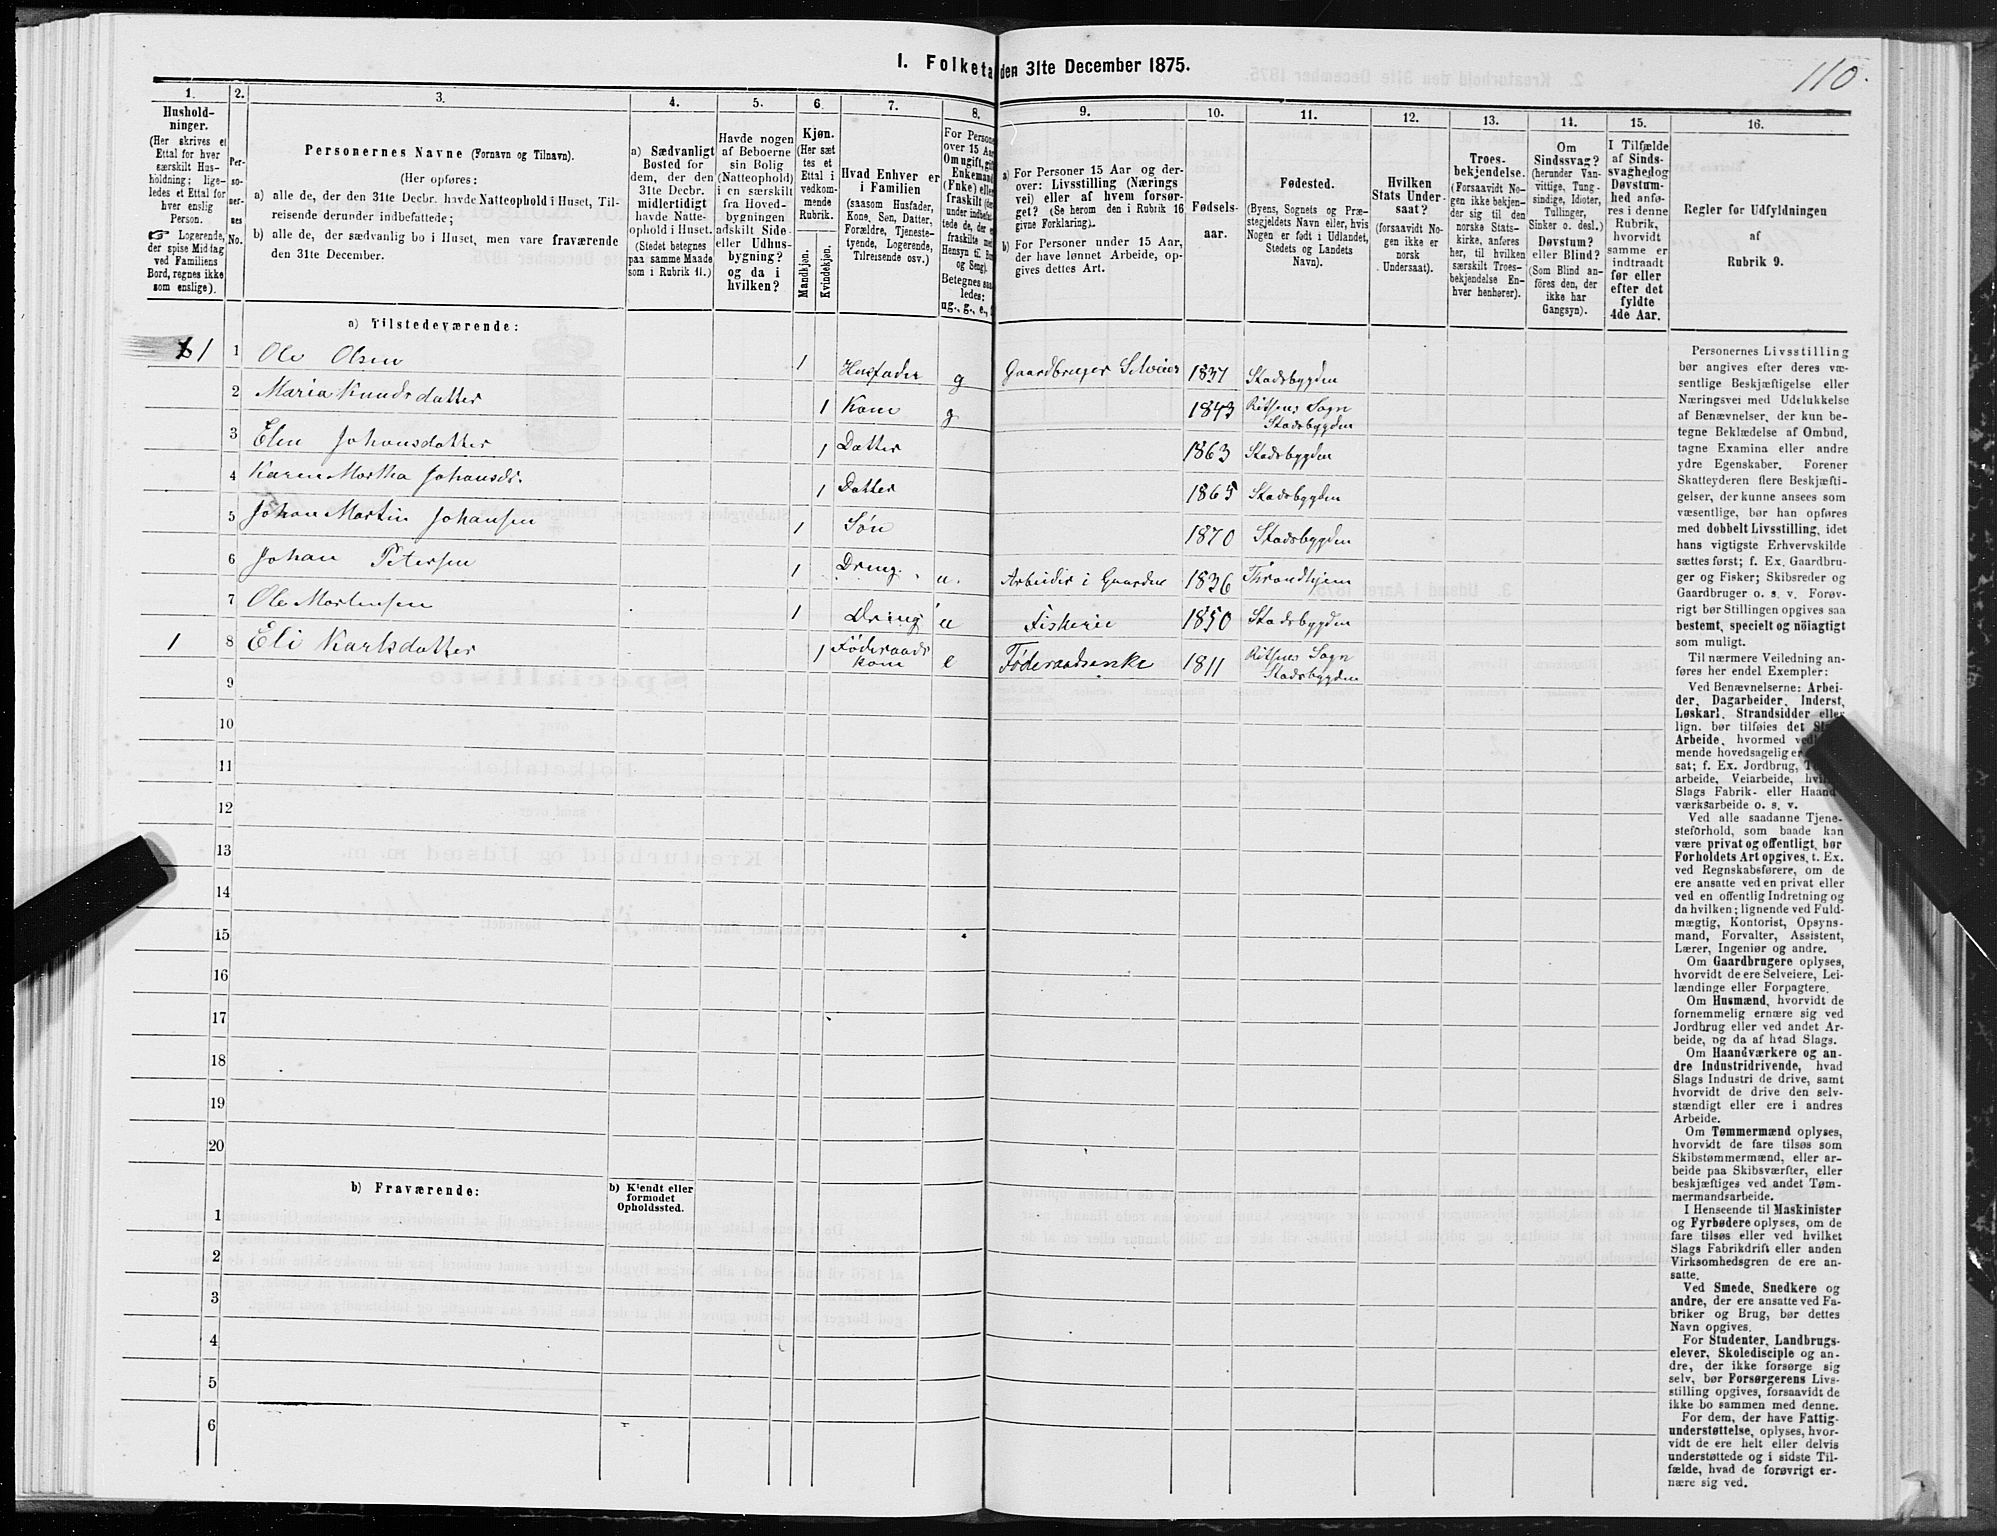 I. Folketa den 31te December 1875.
110.
1.
2.
3.
4.
5.
6.
7.
8.
9.
10.
11.
12.
13.
14.
15.
16.
Hushold-
ninger.
(Her skrives et
Ettal for hver
særskilt Hus-
holdning; lige-
ledes et Ettal for
hver enslig
Person.
☞ Logerende,
der spise Middag
ved Familiens
Bord, regnes ikke
som enslige).
Per-
so-
ner-
nes
No.
Personernes Navne (Fornavn og Tilnavn).
(Her opføres:
a) alle de, der den 31te Decbr. havde Natteophold i Huset, Til-
reisende derunder indbefattede;
b) alle de, der sædvanlig bo i Huset, men vare fraværende
den 31te December.
a) Sædvanligt
Bosted for
dem, der den
31te Decbr.
midlertidigt
havde Natte-
ophold i Huset.
(Stedet betegnes
paa samme Maade
som i Rubrik 11.)
Havde nogen
af Beboerne
sin Bolig
(Natteophold)
i en særskilt
fra Hoved-
bygningen
adskilt Side-
eller Udhus-
bygning?
og da i
hvilken?
Kjøn.
(Her sæt
tes et
Ettal i
vedkom-
mende
Rubrik.
Mandkjøn.
Kvindekjøn.
Hvad Enhver er
i Familien
(saasom Husfader,
Kone, Søn, Datter,
Forældre, Tjeneste-
tyende, Logerende,
Tilreisende osv.).
For Persone
over 15 Aar
Om ugift, gift
Enkemand
(Fnke) eller
fraskilt (der
under indbefat
tede de, der er
fraskilte med
Hensyn til Bo
og Seng).
Betegnes saa
ledes:
ug., g., e., f
a) For Personer 15 Aar og der-
over: Livsstilling (Nærings
vei) eller af hvem forsør-
get? (Se herom den i Rubrik 16
givne Forklaring).
b) For Personer under 15 Aar,
der have lønnet Arbeide, op-
gives dettes Art.
Fødsels-
aar.
Fødested.
(Byens, Sognets og Præ-
stegjeldets Navn eller, hvis
Nogen er født i Udlandet,
Stedets og Landets
Navn).
Hvilken
Stats Under-
saat?
(forsaavidt No-
gen ikke er
norsk
Undersaat).
Troes-
bekjendelse.
(Forsaavidt No-
gen ikke bekjen-
der sig til den
norske Stats-
kirke, anføres
her, til hvilken
særskilt Troes-
bekjendelse En-
hver henhører).
Om
Sindssvag?
(herunder Van-
vittige, Tung-
sindige, Idioter,
Tullinger,
Sinker o. desl.)
Døvstum?
eller Blind?
(Som Blind an-
føres den, der
ikke har
Gangsyn).
I Tilfælde
af Sinds-
svaghed og
Døvstum-
hed anfø-
res i denne
Rubrik,
hvorvidt
samme er
indtraadt
før eller
efter det
fyldte
4de Aar.
Regler for Udfyldningen
af
Rubrik 9.
a) Tilstedeværende:
1 1 Ole Olsen 1 Husfader g Gaardbruger Selveier 1837 Stadsbygden
2 Maria Knudsdatter 1 Kone g 1843 Ritsens Sogn
Stadsbygden
3 Elen Johansdatter 1 Datter 1863 Stadsbygden
4 Karen Martha Johansdr. 1 Datter 1865 Stadsbygden
5 Johan Martin Johansen 1 Søn 1870 Stadsbygden
6 Johan Petersen 1 Dreng. u. Arbeider i Gaarden 1836 Throndhjem
7 Ole Mortensen 1 Dreng u Fiskerie 1850 Stadsbygden
1 8 Eli Karlsdatter 1 Føderaads
kone e Føderaadsenke 1811 Ritsens Sogn
Stadsbygden
9
10
11
12
13
14
15
16
17
18
19
20
b) Fraværende:
b) Kjendt eller
formodet
Opholdssted.
1
2
3
4
5
6
Personernes Livsstilling
bør angives efter deres væ-
sentlige Beskjæftigelse eller
Næringsvei med Udelukkelse
af Benævnelser, der kun be-
tegne Beklædelse af Ombud,
tagne Examina eller andre
ydre Egenskaber. Forener
Skatteyderen flere Beskjæfti-
gelser, der kunne ansees som
væsentlige, bør han opføres
med dobbelt Livsstilling, idet
hans vigtigste Erhvervskilde
sættes først; f. Ex. Gaardbru-
ger og Fisker; Skibsreder og
Gaardbruger o. s. v. Forøv-
rigt bør Stillingen opgives saa
bestemt, specielt og nöiagtigt
som muligt.
Til nærmere Veiledning an-
føres her endel Exempler:
Ved Benævnelserne: Arbei-
der, Dagarbeider, Inderst,
Løskarl, Strandsidder eller
lign. bør tilføies det Sl
Arbeide, hvormed ved
mende hovedsagelig er
sat; f. Ex. Jordbrug,
arbeide, Veiarbeide, hvil
Slags Fabrik- eller Haand
værksarbeide o. s. v.
Ved alle saadanne Tjene-
steforhold, som baade kan
være privat og offentligt, bør
Forholdets Art opgives, t. Ex.
ved Regnskabsførere, om de
ere ansatte ved en privat eller
ved en offentlig Indretning og
da hvilken; lignende ved Fuld-
mægtig, Kontorist, Opsyns-
mand, Forvalter, Assistent,
Lærer, Ingeniør og andre.
Om Gaardbrugere oplyses,
hvorvidt de ere Selveiere, Lei-
lændinge eller Forpagtere.
Om Husmænd, hvorvidt de
fornemmelig ernære sig ved
Jordbrug eller ved andet Ar-
beide, og da af hvad Slags.
Om Haandværkere og an-
dre Industridrivende, hvad
Slags Industri de drive, samt
hvorvidt de drive den selv-
stændigt eller ere i andres
Arbeide.
Om Tømmermænd oplyses,
hvorvidt de fare tilsøs som
Skibstømmermænd, eller ar-
beide paa Skibsværfter, eller
beskjæftiges ved andet Tøm-
mermandsarbeide.
I Henseende til Maskinister
og Fyrbødere oplyses, om de
fare tilsøs eller ved hvilket
Slags Fabrikdrift eller anden
Virksomhedsgren de ere an-
satte.
Ved Smede, Snedkere og
andre, der ere ansatte ved Fa-
briker og Brug, bør dettes
Navn opgives.
For Studenter, Landbrugs-
elever, Skoledisciple og an-
dre, der ikke forsørge sig
selv, bør Forsørgerens Livs-
stilling opgives, forsaavidt de
ikke bo sammen med denne.
For dem, der have Fattig-
understøttelse, oplyses, hvor-
vidt de ere helt eller delvis
understøttede og i sidste Til-
fælde, hvad de forøvrigt er-
nære sig ved.